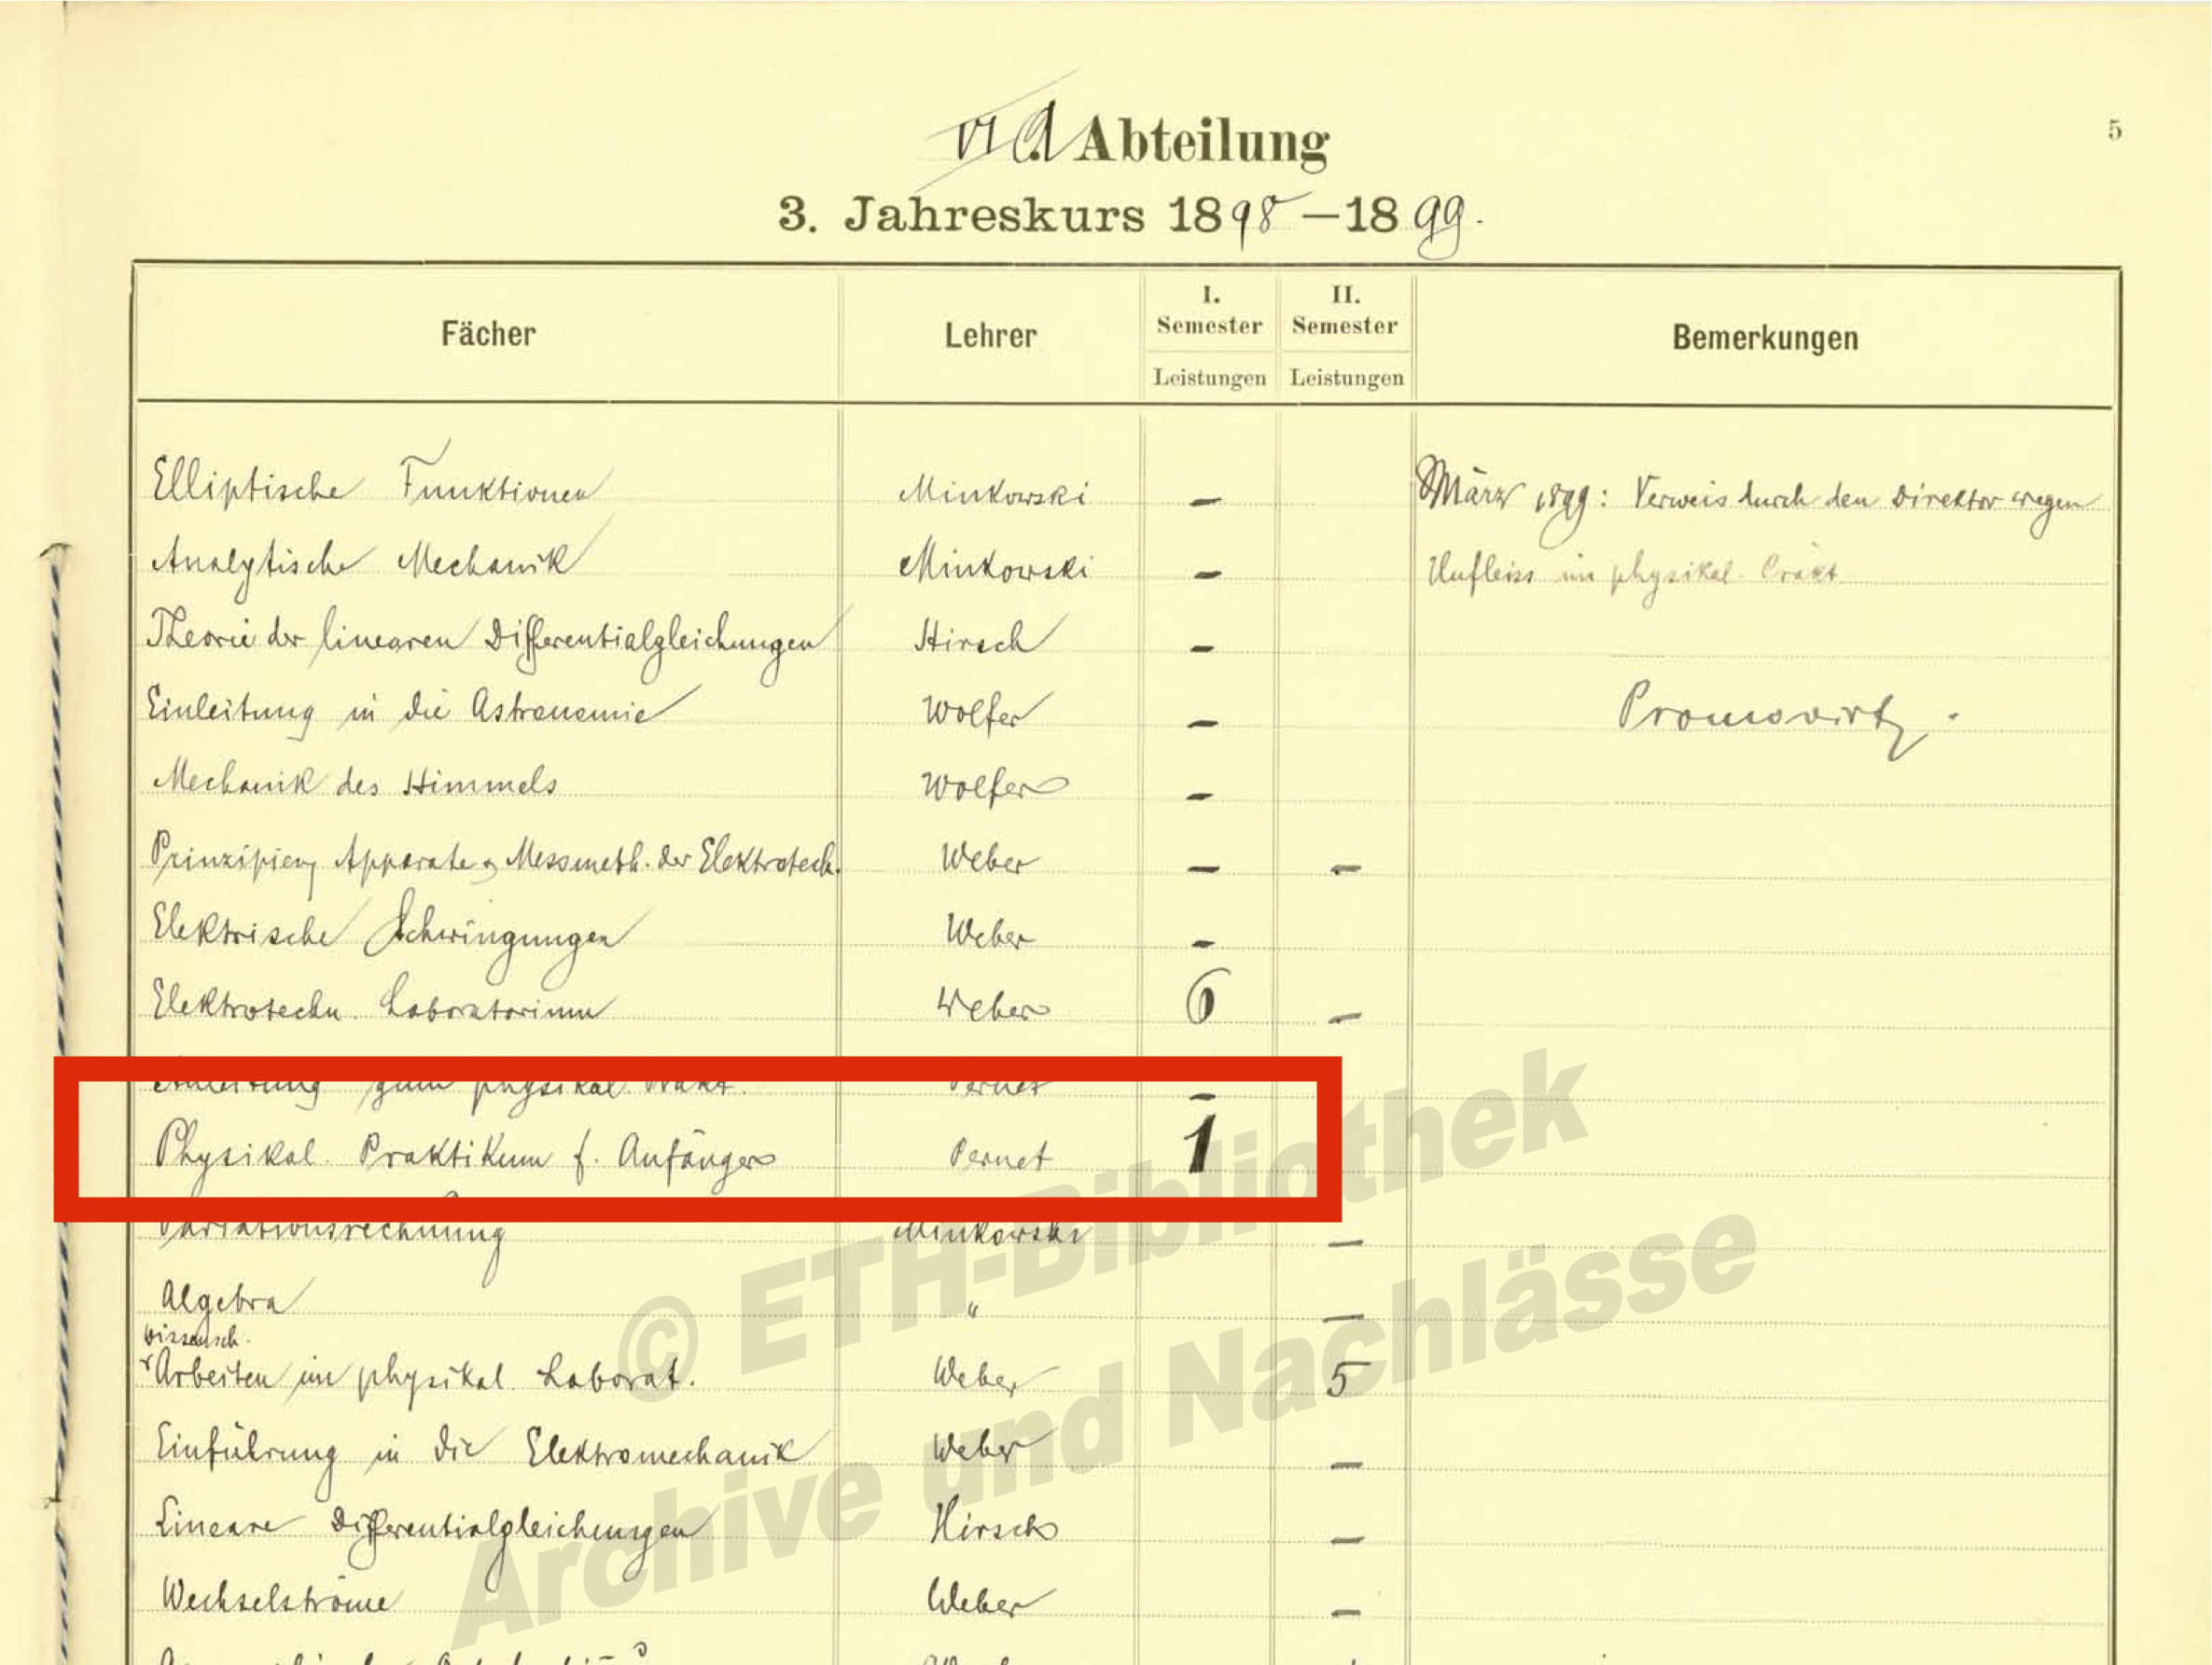 VI A Abteilung
5
3. Jahreskurs 1898–1899.
Fächer
Lehrer
I. Semester
II. Semester
Leistungen
Leistungen
Bemerkungen
Elliptische Funktionen Minkowski –
März 1899: Verweis durch den Direktor wegen
Analytische Mechanik Minkowski –
Unfleiss im physikal. Prakt.
Theorie der linearen Differentialgleichungen Hirsch –
Einleitung in die Astronomie Wolfer – Promovirt.
Mechanik des Himmels Wolfer –
Prinzipien, Apparate & Messmeth. der Elektrotech. Weber – –
Elektrische Schwingungen Weber –
Elektrotechn. Laboratorium Weber 6 –
Anleitung zum physikal. Prakt. Pernet –
Physikal. Praktikum f. Anfänger Pernet 1
Variationsrechnung Minkowski –
Algebra " –
wissensch.
Arbeiten im physikal. Laborat. Weber 5
Einführung in die Elektromechanik Weber –
Lineare Differentialgleichungen Hirsch –
Wechselströme Weber –
© ETH-Bibliothek
Archive und Nachlässe